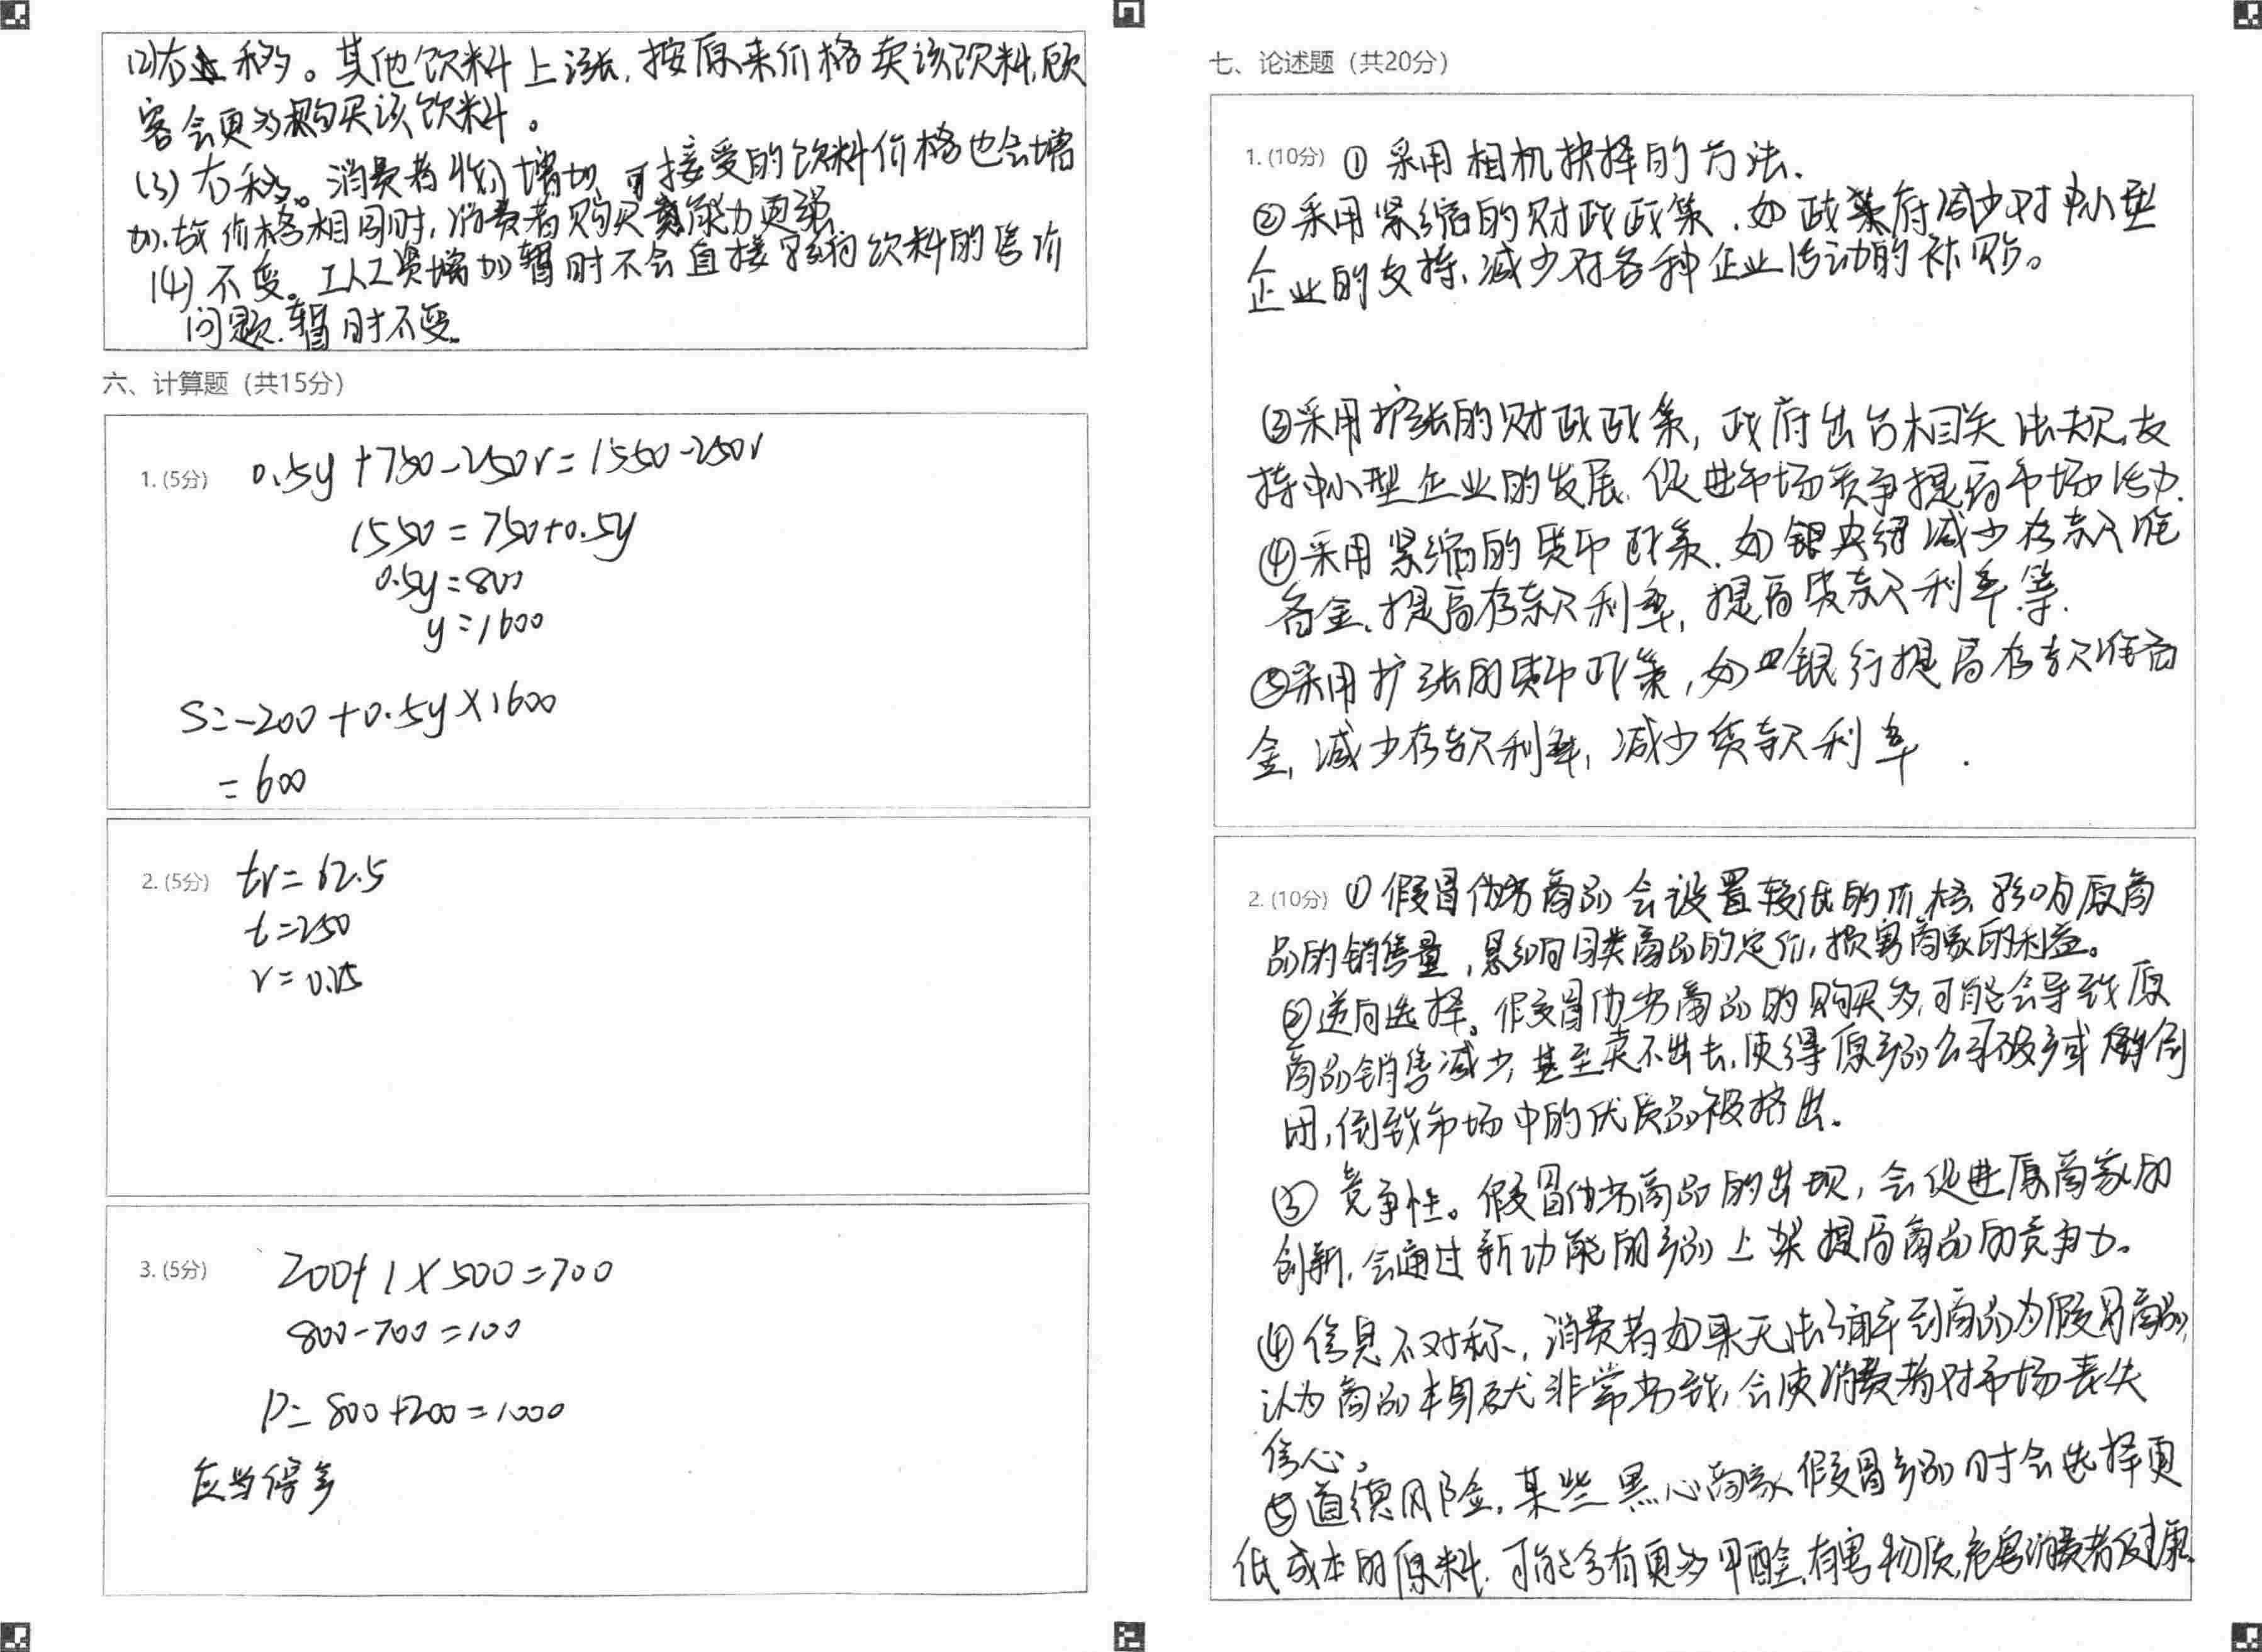 (2)右移。其他饮料上涨,按原来价格卖该饮料,顾
客会更多购买该饮料。
(3)右移。消费者收入增加,可接受的饮料价格也会增
加,故价格相同时,消费者购买能力更强
(4)不变。工人工资增加暂时不会直接影响饮料的售价
问题,暂时不变。
六、计算题(共15分)
1.(5分) 0.5y+750-250r=1550-250r
1550=750+0.5y
0.5y=800
y=1600
S=-200+0.5y×1600
=600
2.(5分) tr=62.5
t=250
r=0.25
3.(5分) 200+1×500=700
800-700=100
P=800+200=1000
应当停产
七、论述题(共20分)
1.(10分) ①采用相机抉择的方法.
②采用紧缩的财政政策.如政府减少对中小型
企业的支持、减少对各种企业活动的补贴。
③采用扩张的财政政策,政府出台相关法规,支
持中小型企业的发展.促进市场竞争提高市场活力.
④采用紧缩的货币政策.如央行减少存款准
备金.提高存款利率,提高贷款利率.等.
⑤采用扩张的货币政策,如银行提高存款准备
金,减少存款利率,减少贷款利率.
2.(10分) ①假冒伪劣商品会设置较低的价格.影响原商
品的销售量,影响同类商品的定价,损害商家的利益。
②逆向选择。假冒伪劣商品的购买多,可能会导致原
商品销售减少,甚至卖不出去,使得原产品公司破产或倒
闭,倒致市场中的优质品被挤出。
③竞争性。假冒伪劣商品的出现,会促进原商家的
创新,会通过新功能的产品上架提高商品的竞争力。
④信息不对称,消费者如果无法了解到商品为假冒商品,
认为商品本身就非常劣域,会使消费者对市场丧失
信心。
⑤道德风险,某些黑心商家假冒产品时会选择更
低成本的原料.可能含有更多甲醛,有害物质,危害消费者健康.